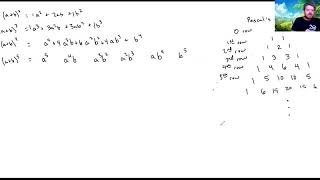 (a+b)² = 1a² + 2ab + 1b²
(a+b)³ = 1a³ + 3a²b + 3ab² + 1b³
(a+b)⁴ = a⁴ + 4a³b + 6a²b² + 4ab³ + b⁴
(a+b)⁵ = a⁵ a⁴b a³b² a²b³ ab⁴ b⁵
Pascal's
0 row
1st row 1 1
2nd row 1 2 1
3rd row 1 3 3 1
4th row 1 4 6 4 1
5th row 1 5 10 10 5
1 6 15 20 15 6